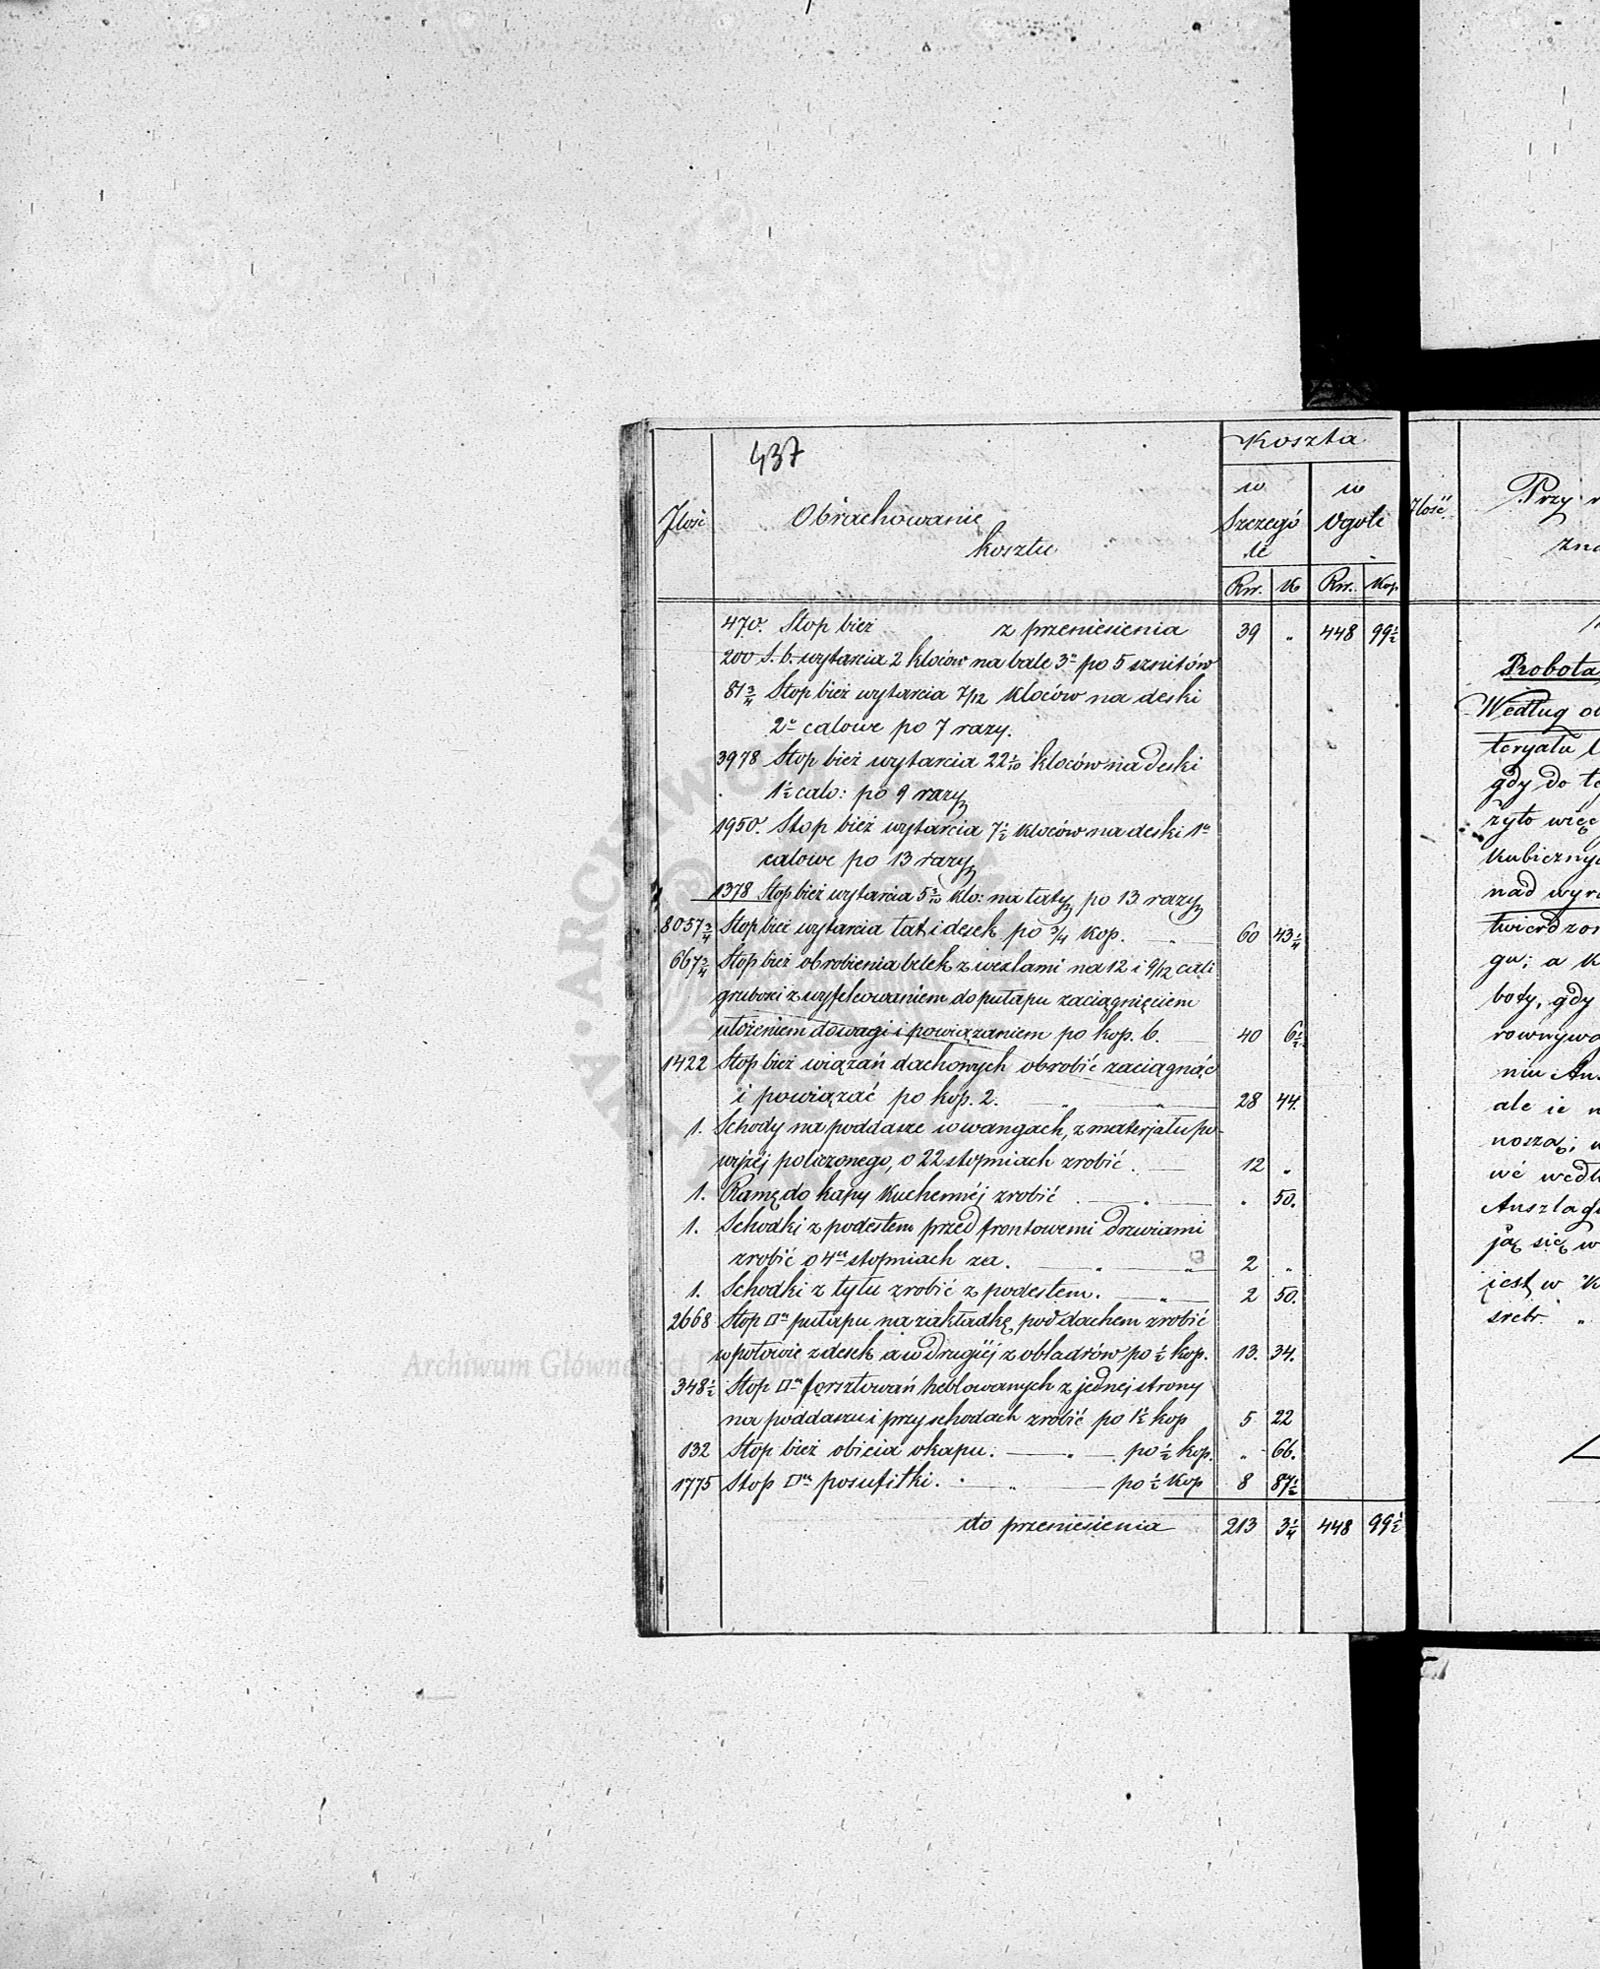 437
Jlość
Obrachowanie
kosztu
Koszta
w Szczegó le
w Ogole
Rsr. Ko Rsr. Kop.
470. Stop bież z przeniesienia 39 „ 448 99½
200 S. b. wytarcia 2 kloców na bale 3" po 5 sznitów
81¾ Stop bież wytarcia 7/12 kloców na deski
2" calowe po 7 razy.
3978 Stop bież wytarcia 22 1/10 kloców na deski
1½ calo: po 9 razy
1950. Stop bież wytarcia 7½ kloców na deski 1"
calowe po 13 razy
1378 Stop bież wytarcia 5 3/10 klo: na łaty po 13 razy
8057¾ Stop bież wytarcia łat i desek po ¾ kop. 60 43¼
667¾ Stop bież obrobienia belek z wiszlami na 12 i 9/12 cali
grubości z wyfelcowaniem do pułapu zaciągnięciem
ułożeniem do wagi i powiązaniem po kop. 6. 40 6½
1422 Stop bież wiązań dachowych obrobić zaciągnąć
i powiązać po kop. 2. „ „ 28 44.
1. Schody na poddasze w wangach, z materjału po-
wyżej policzonego, o 22 stopniach zrobić. 12 „
1. Ramę do kapy kuchennéj zrobić . „ . 50.
1. Schodki z podestem przed frontowemi drzwiami
zrobić o 4ch stopniach za. „ „ 2 „
1. Schodki z tyłu zrobić z podestem. „ 2 50.
2668 Stop □ch pułapu na zakładkę pod dachem zrobić
w połowie z desek a w drugiéj z obladrów po ½ kop. 13. 34.
348½ Stop □ch forsztowań heblowanych z jednej strony
na poddaszu i przy schodach zrobić po 1½ kop 5 22
132 Stop bież obicia okapu. „ po ½ kop. „ 66.
1775 Stop □ch posufitki. „ po ½ kop 8 87½
do przeniesienia 213 3¼ 448 99½
Jlość
Przy
Robota
Według
teryału
gdy do
żyło więc
kubicznych
nad
twierdzon
gu; a
boty, gdy
rownywa
niu
ale
noszą;
wé wedł
Auszlag
ją się w
jest w
srebr. „
Archiwum Główne Akt Dawnych
Archiwum Główne Akt Dawnych